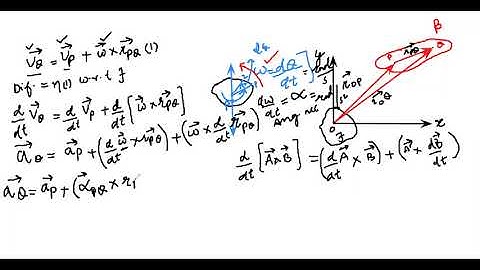 ✓V⃗_Q = ✓V⃗_P + ω⃗ × r⃗_PQ (1)
Dif. = n (1) w.r.t. J
d/dt V⃗_Q = d/dt V⃗_P + d/dt [ω⃗ × r⃗_PQ]
a⃗_Q = a⃗_P + (d/dt ω⃗ × r⃗_PQ) + (ω⃗ × d/dt r⃗_PQ)
a⃗_Q = a⃗_P + (α⃗_PQ × r
dθ
ω = dθ/dt
dω/dt = α = rad
Ang acc
d/dt [A⃗ × B⃗] = (d/dt A⃗ × B⃗) + (A⃗ × dB⃗/dt)
y
B
P
Q
r_PQ
r⃗_OP
r⃗_OQ
O
x
J